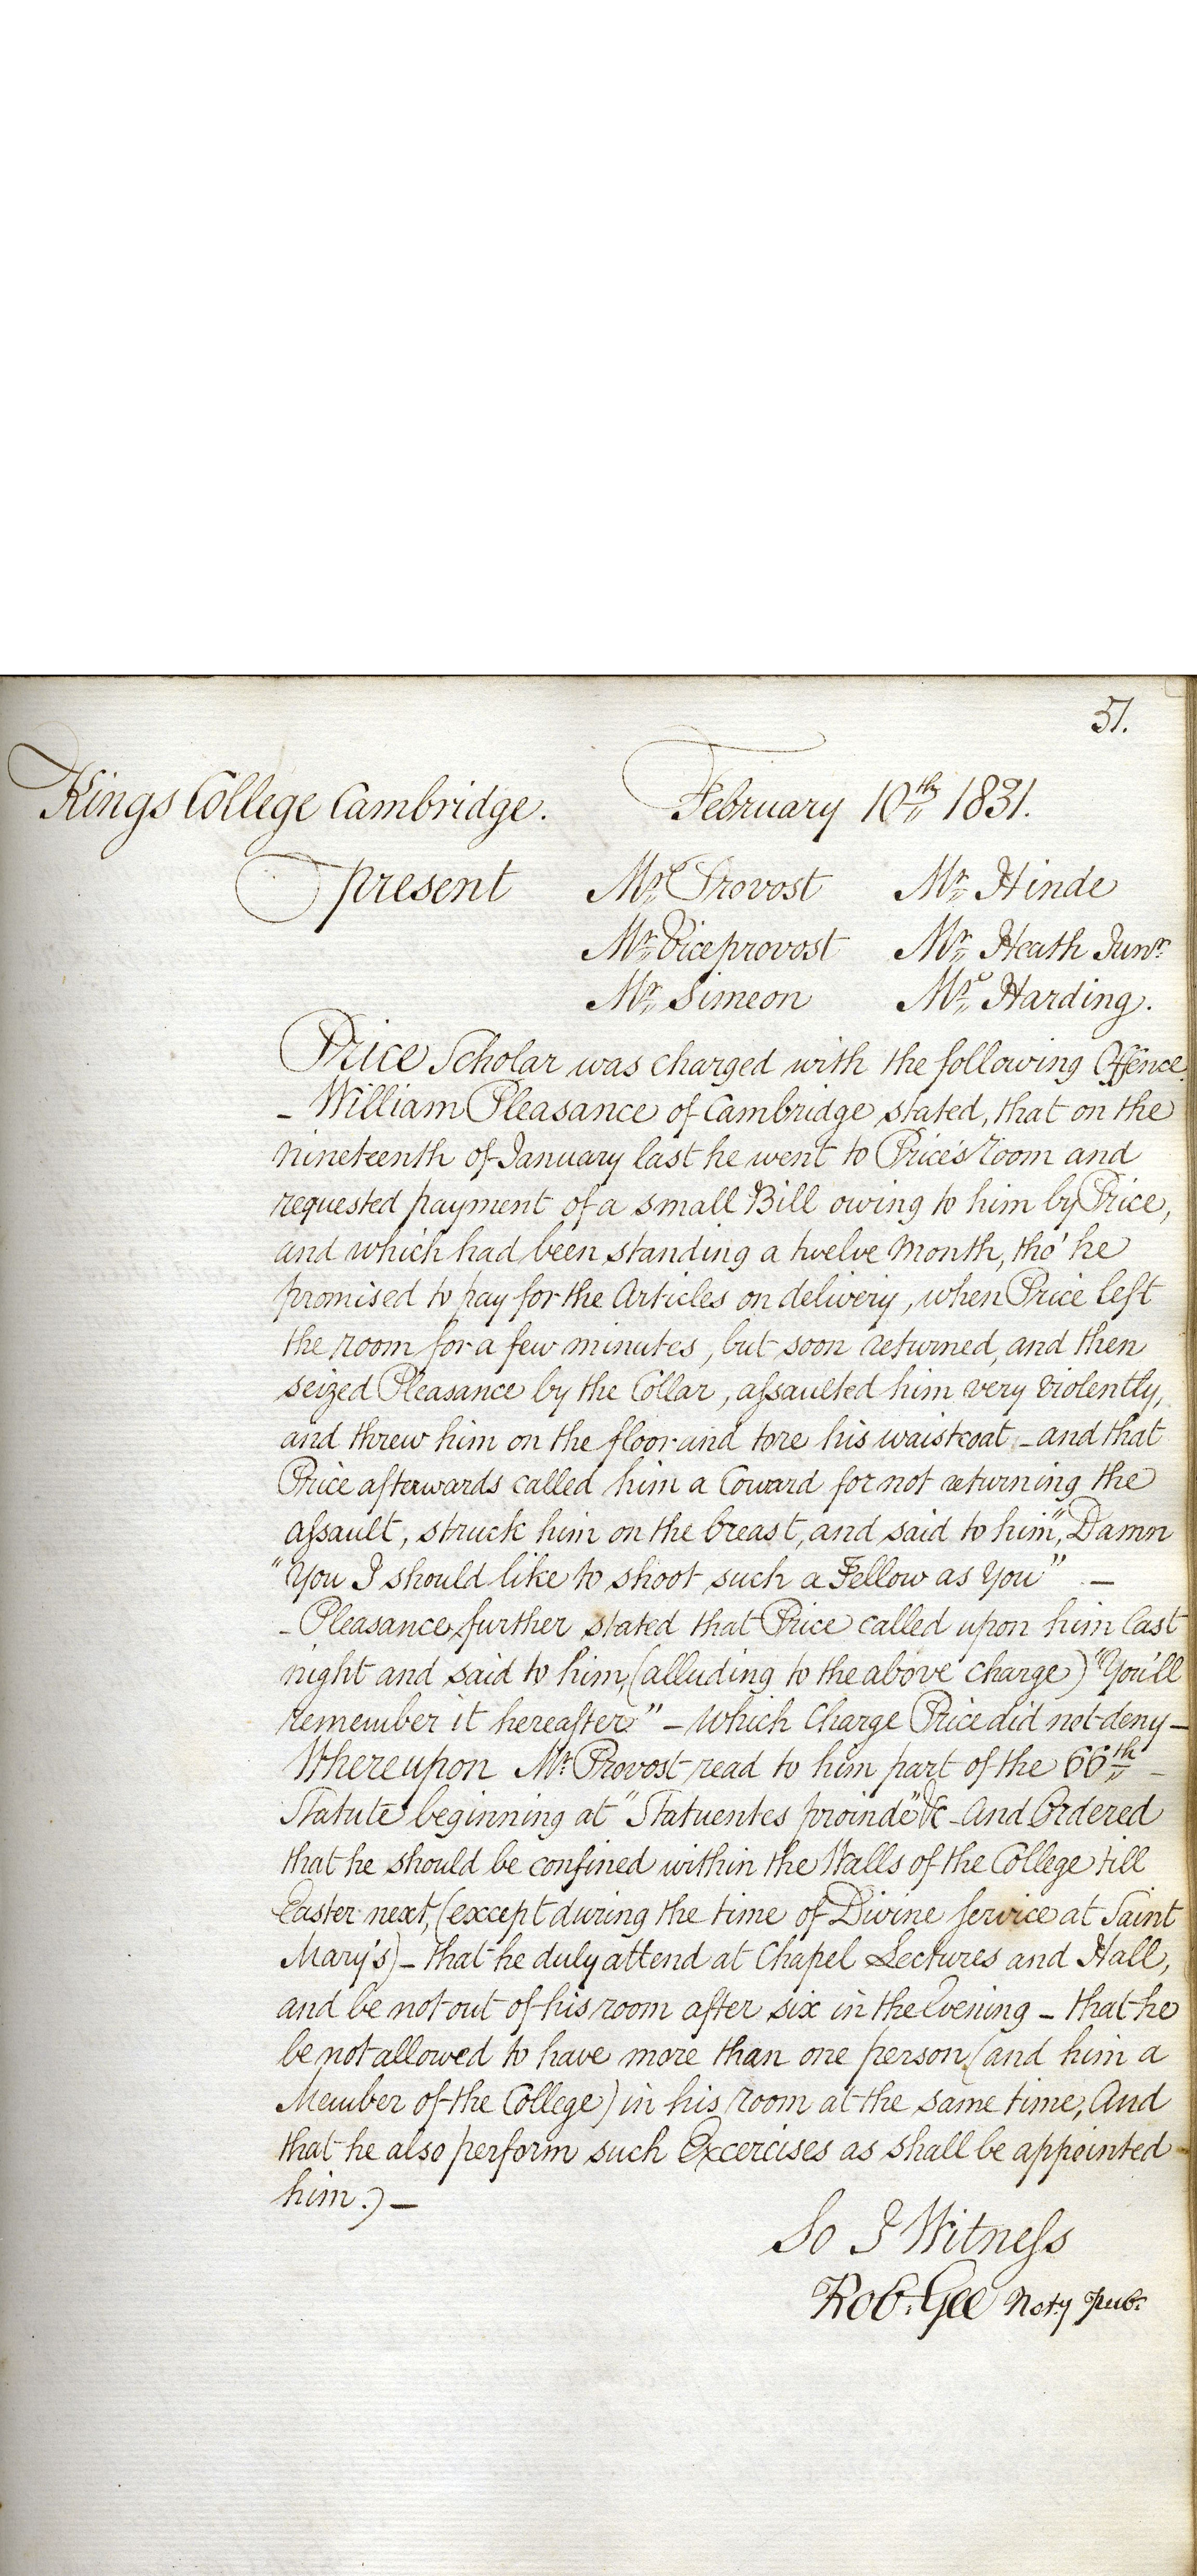 51.
Kings College Cambridge. February 10th 1831.
present Mr Provost Mr Hinde
Mr Viceprovost Mr Heath Junr
Mr Simeon Mr Harding.
Price Scholar was charged with the following Offence.
- William Pleasance of Cambridge stated, that on the
nineteenth of January last he went to Price's room and
requested payment of a small Bill owing to him by Price,
and which had been standing a twelve Month, tho' he
promised to pay for the Articles on delivery, when Price left
the room for a few minutes, but soon returned, and then
seized Pleasance by the Collar, assaulted him very violently,
and threw him on the floor and tore his waistcoat - and that
Price afterwards called him a Coward for not returning the
assault, struck him on the breast, and said to him, "Damn
"You I should like to shoot such a Fellow as You" . -
- Pleasance further stated that Price called upon him last
night and said to him, (alluding to the above charge) "You'll
remember it hereafter." - Which Charge Price did not deny -
Whereupon Mr Provost read to him part of the 66th -
Statute beginning at "Statuentes proinde" &c - And Ordered
that he should be confined within the Walls of the College till
Easter next, (except during the time of Divine Service at Saint
Mary's) - that he duly attend at Chapel Lectures and Hall,
and be not out of his room after six in the Evening - that he
be not allowed to have more than one person (and him a
Member of the College) in his room at the same time, And
that he also perform such Excercises as shall be appointed
him.) -
So I Witness
Rob. Gee Noty Pub: